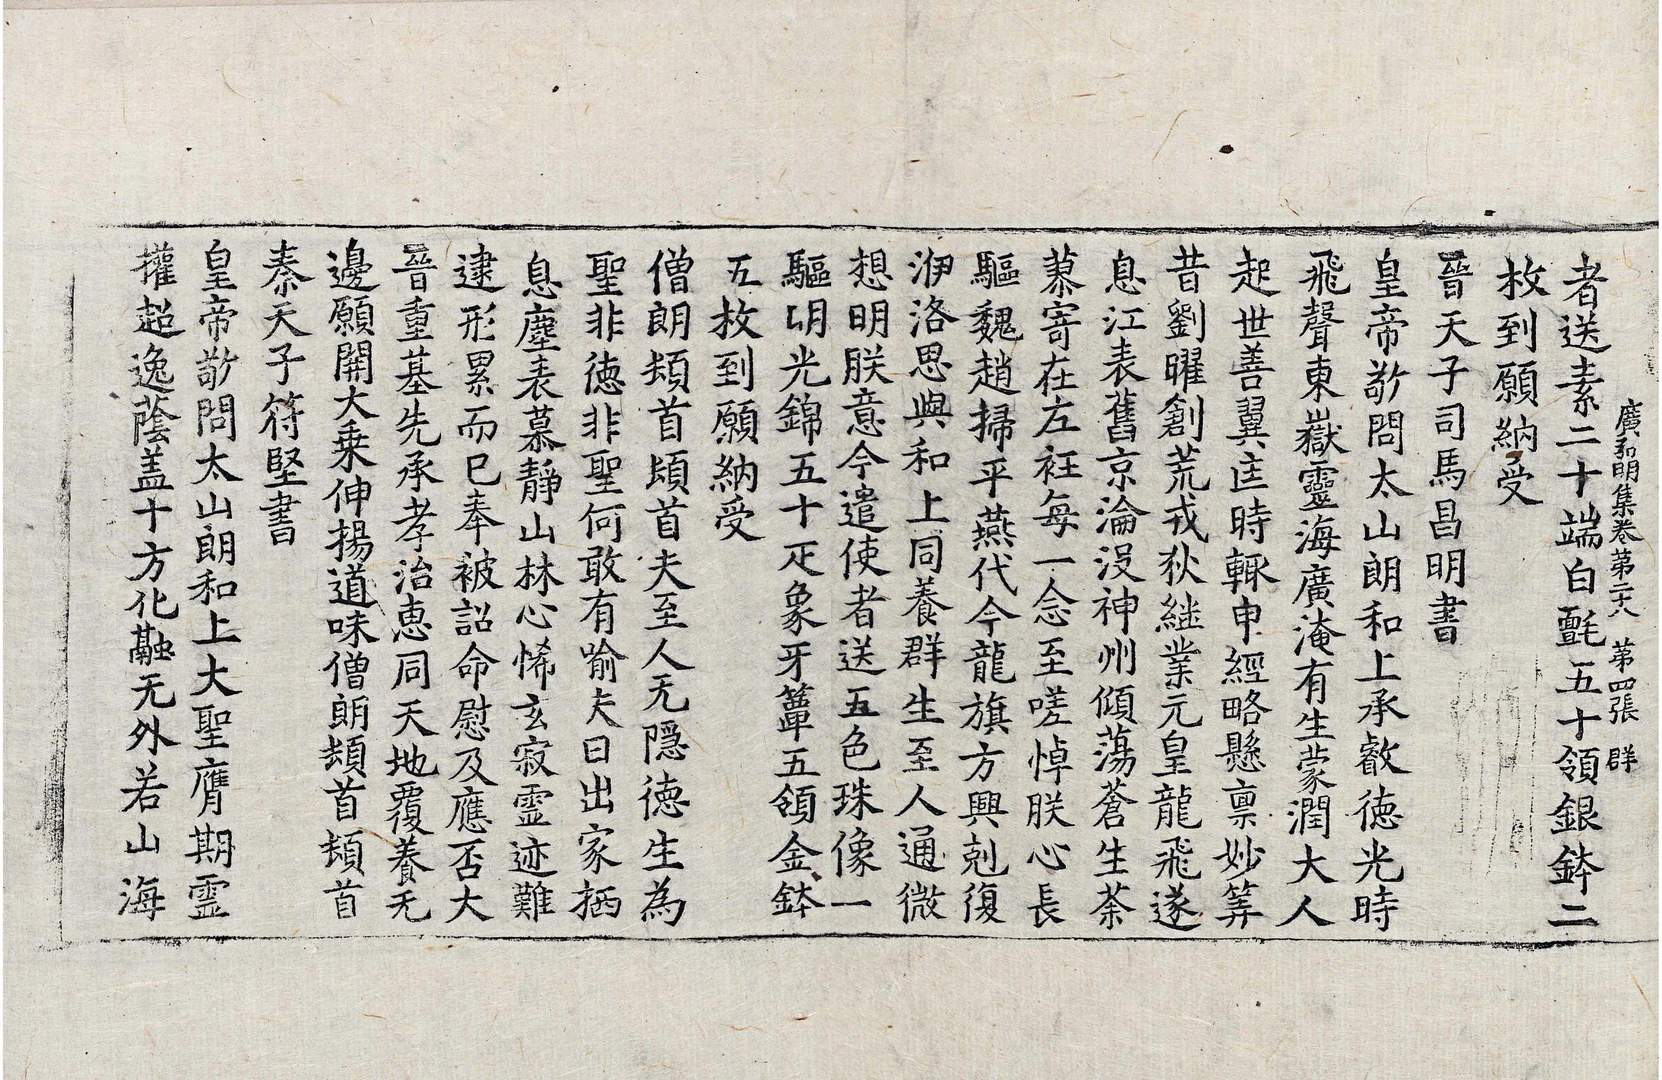 廣弘明集卷第二十八　第四張　群
者送素二十端白㲲五十領銀鉢二
枚到願納受
晉天子司馬昌明書
皇帝敬問太山朗和上承叡徳光時
飛聲東嶽靈海廣淹有生蒙潤大人
起世善翼匡時輙申經略懸稟妙筭
昔劉曜創荒戎狄継業元皇龍飛遂
息江表舊京淪没神州傾蕩蒼生荼
蓼寄在左衽每一念至嗟悼朕心長
驅魏趙掃平燕代今龍旗方興剋復
洢洛思與和上同養群生至人通微
想明朕意今遣使者送五色珠像一
軀明光錦五十疋象牙簟五領金鉢
五枚到願納受
僧朗頓首頓首夫至人无隠徳生為
聖非徳非聖何敢有喻夫曰出家栖
息塵表慕靜山林心悕玄寂靈迹難
逮形累而已奉被詔命慰及應否大
晉重基先承孝治惠同天地覆養无
邊願開大乗伸揚道味僧朗頓首頓首
秦天子符堅書
皇帝敬問太山朗和上大聖膺期靈
權超逸蔭盖十方化融无外若山海